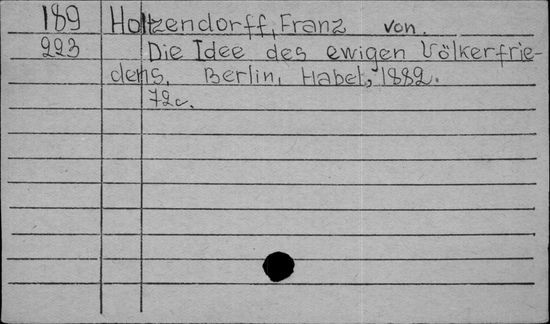 189 Holtzendorff, Franz von.
223 Die Idee des ewigen Völkerfrie-
dens. Berlin, Habel, 1882.
72c.